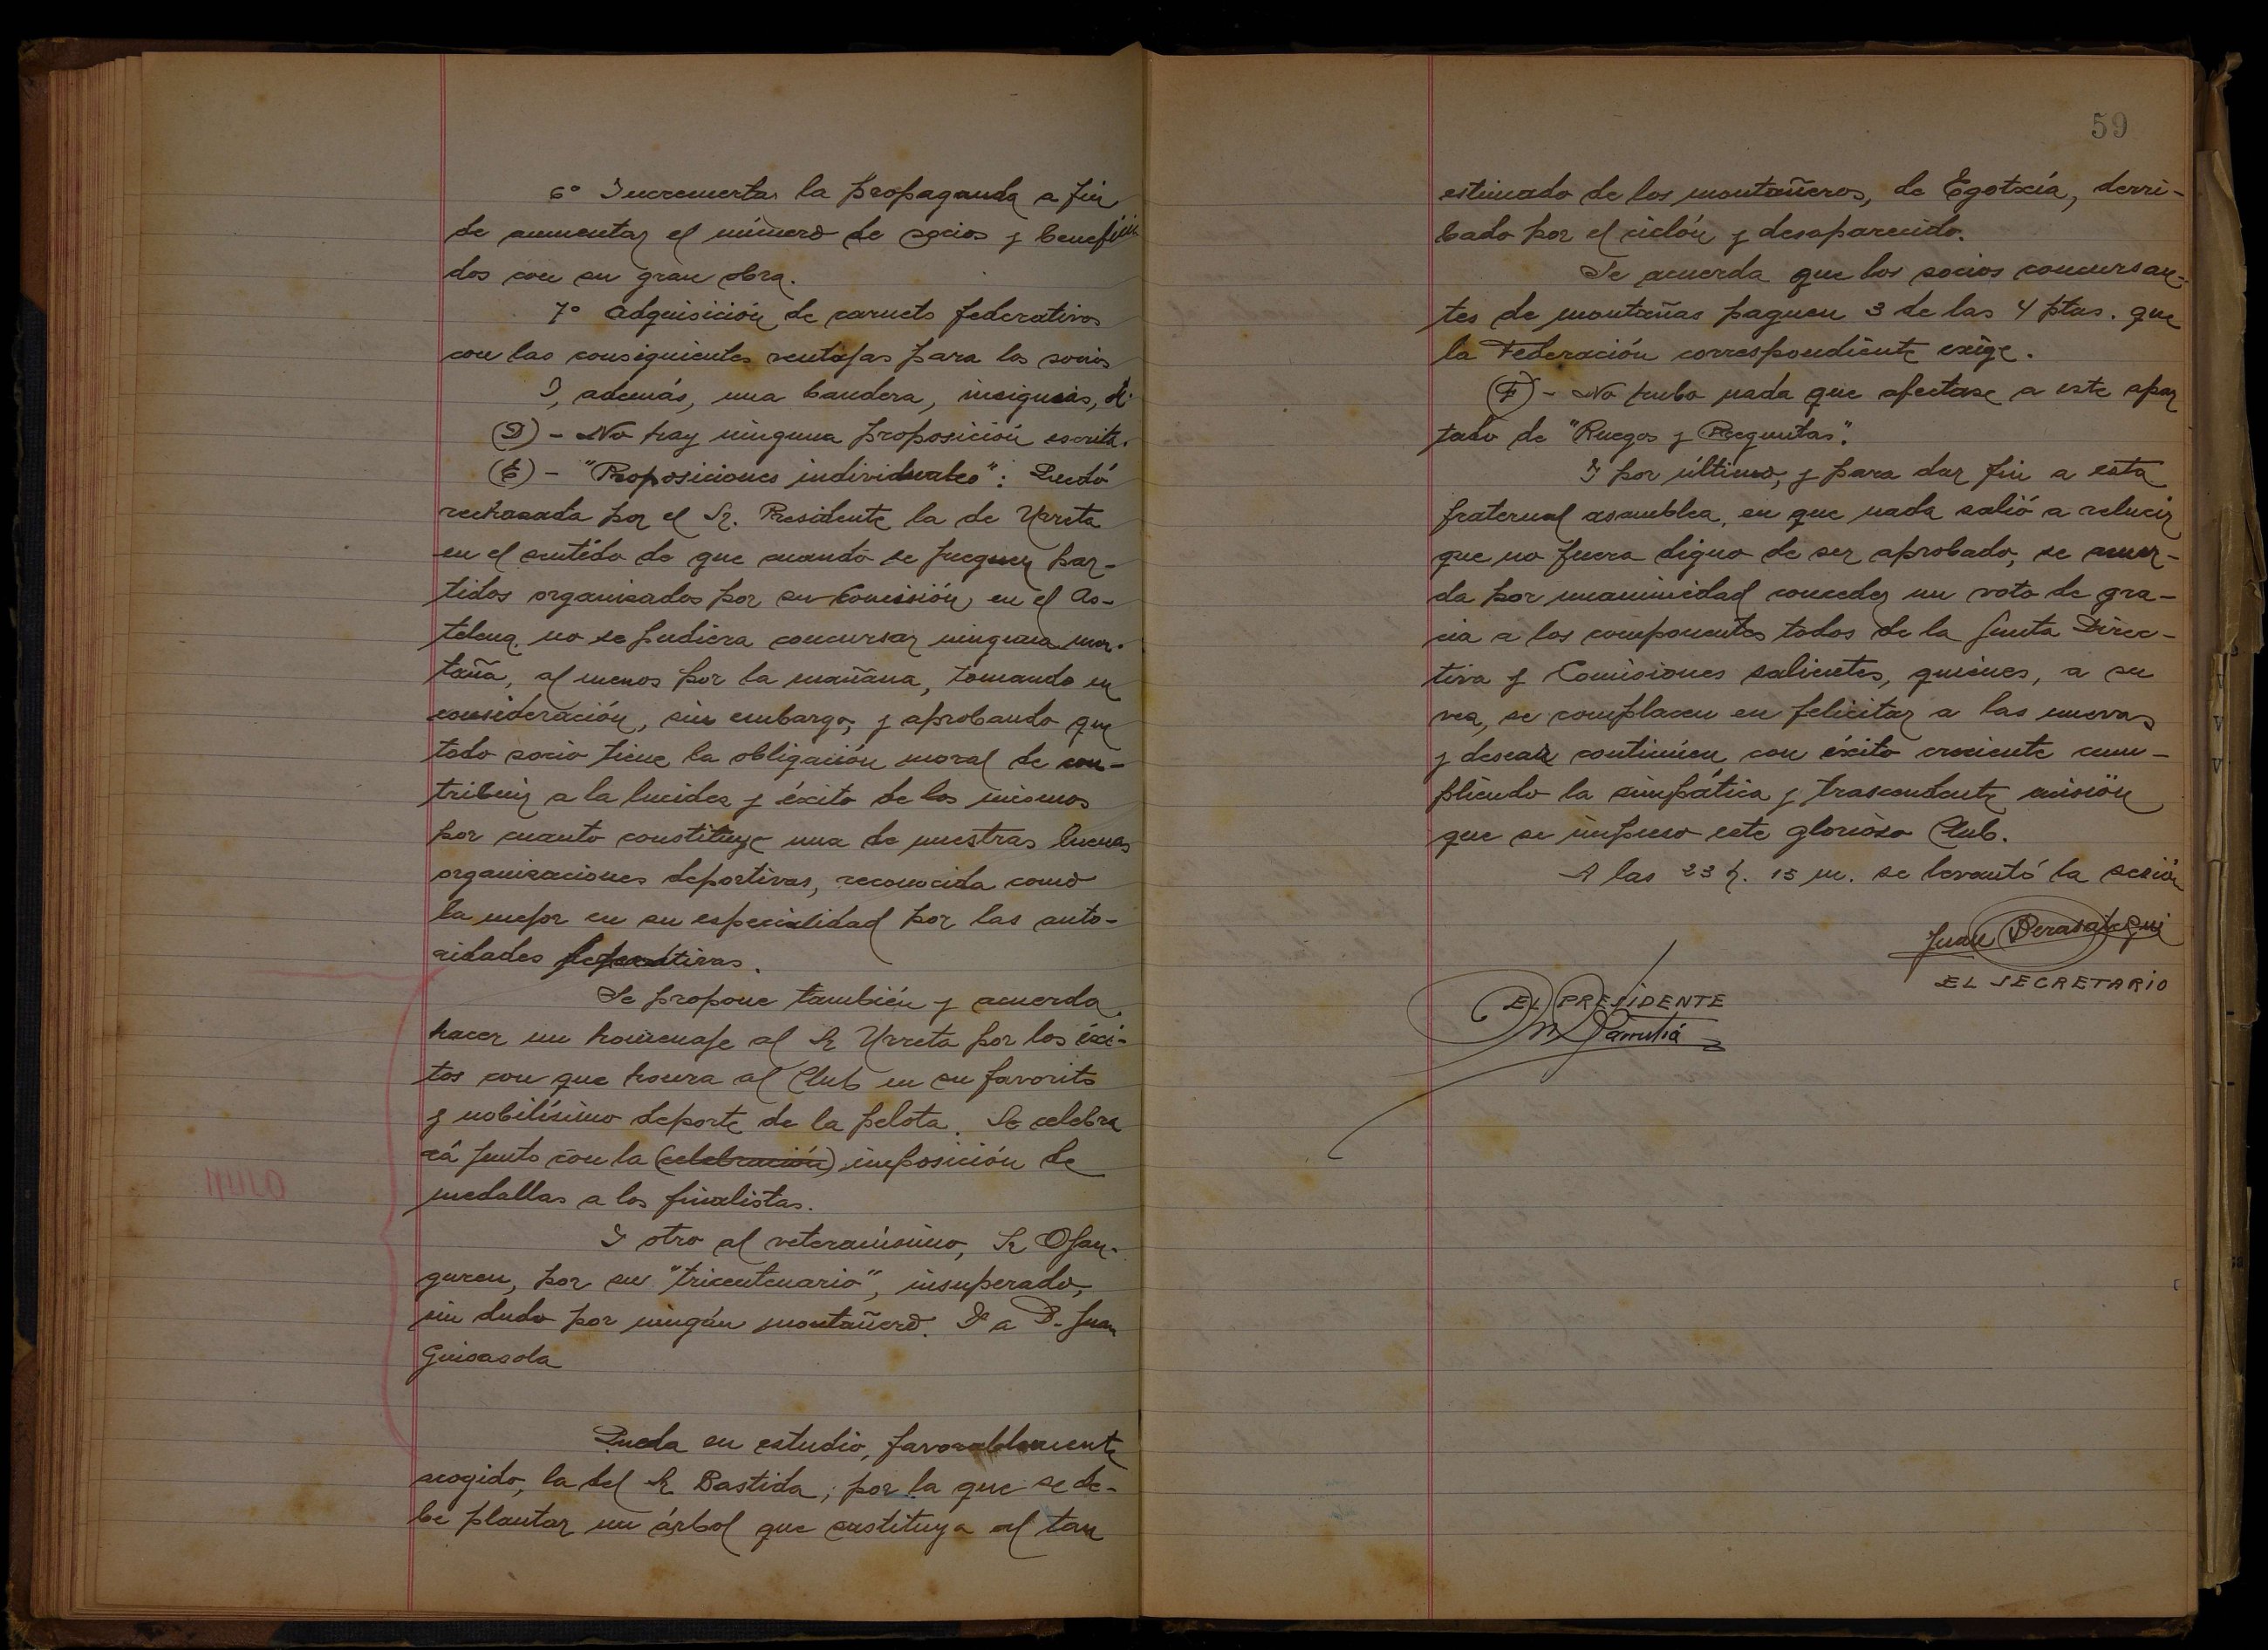 6º Incrementar la propaganda a fin
de aumentar el número de socios y benefician
dos con su gran obra.
7º Adquisición de carnets federativos
con las consiguientes ventajas para los socios
Y, además, una bandera, insignias,
(D) - No hay ninguna proposición escrita.
(E) - "Proposiciones individuales": Quedó
rechazada por el Sr. Presidente la de Urreta
en el sentido de que cuando se jueguen par-
tidos organizados por su Comisión, en el As-
telena, no se pudiera concursar ninguna mon-
taña, al menos por la mañana, tomando en
consideración, sin embargo, y aprobando que
todo socio tiene la obligación moral de con-
tribuir a la lucidez y éxito de los mismos
por cuanto constituye una de nuestras buenas
organizaciones deportivas, reconocida como
la mejor en su especialidad por las auto-
ridades
Se propone también y acuerda
hacer un homenaje al Sr Urreta por los éxi-
tos con que honra al Club en su favorito
y nobilísimo deporte de la pelota. Se celebra
rá junto con la (celebración) imposición de
medallas a los finalistas.
Y otro al veteranísimo, Sr Ojan-
guren, por su "tricentenario", insuperado,
sin duda por ningún montañero. Y a D. Juan
Guisasola
Queda en estudio, favorablemente
acogido, la del Sr Bastida; por la que se de-
be plantar un árbol que sustituya al tan
59
estimado de los montañeros, de Egotxía, derri-
bado por el ciclón y desaparecido.
Se acuerda que los socios concursan-
tes de montañas paguen 3 de las 4 ptas. que
la Federación correspondiente exige.
(F) - No hubo nada que afectase a este apar
tado de "Ruegos y Preguntas".
Y por último, y para dar fin a esta
fraternal asamblea, en que nada salió a relucir
que no fuera digno de ser aprobado, se acuer-
da por unanimidad conceder un voto de gra-
cia a los componentes todos de la Junta Direc-
tiva y Comisiones salientes, quienes, a su
vez, se complacen en felicitar a las nuevas
y desean continúen con éxito creciente cum-
pliendo la simpática y trascendente misión
que se impuso este glorioso Club.
A las 23 h. 15 m. se levantó la sesión
Juan Berasategui
EL SECRETARIO
EL PRESIDENTE